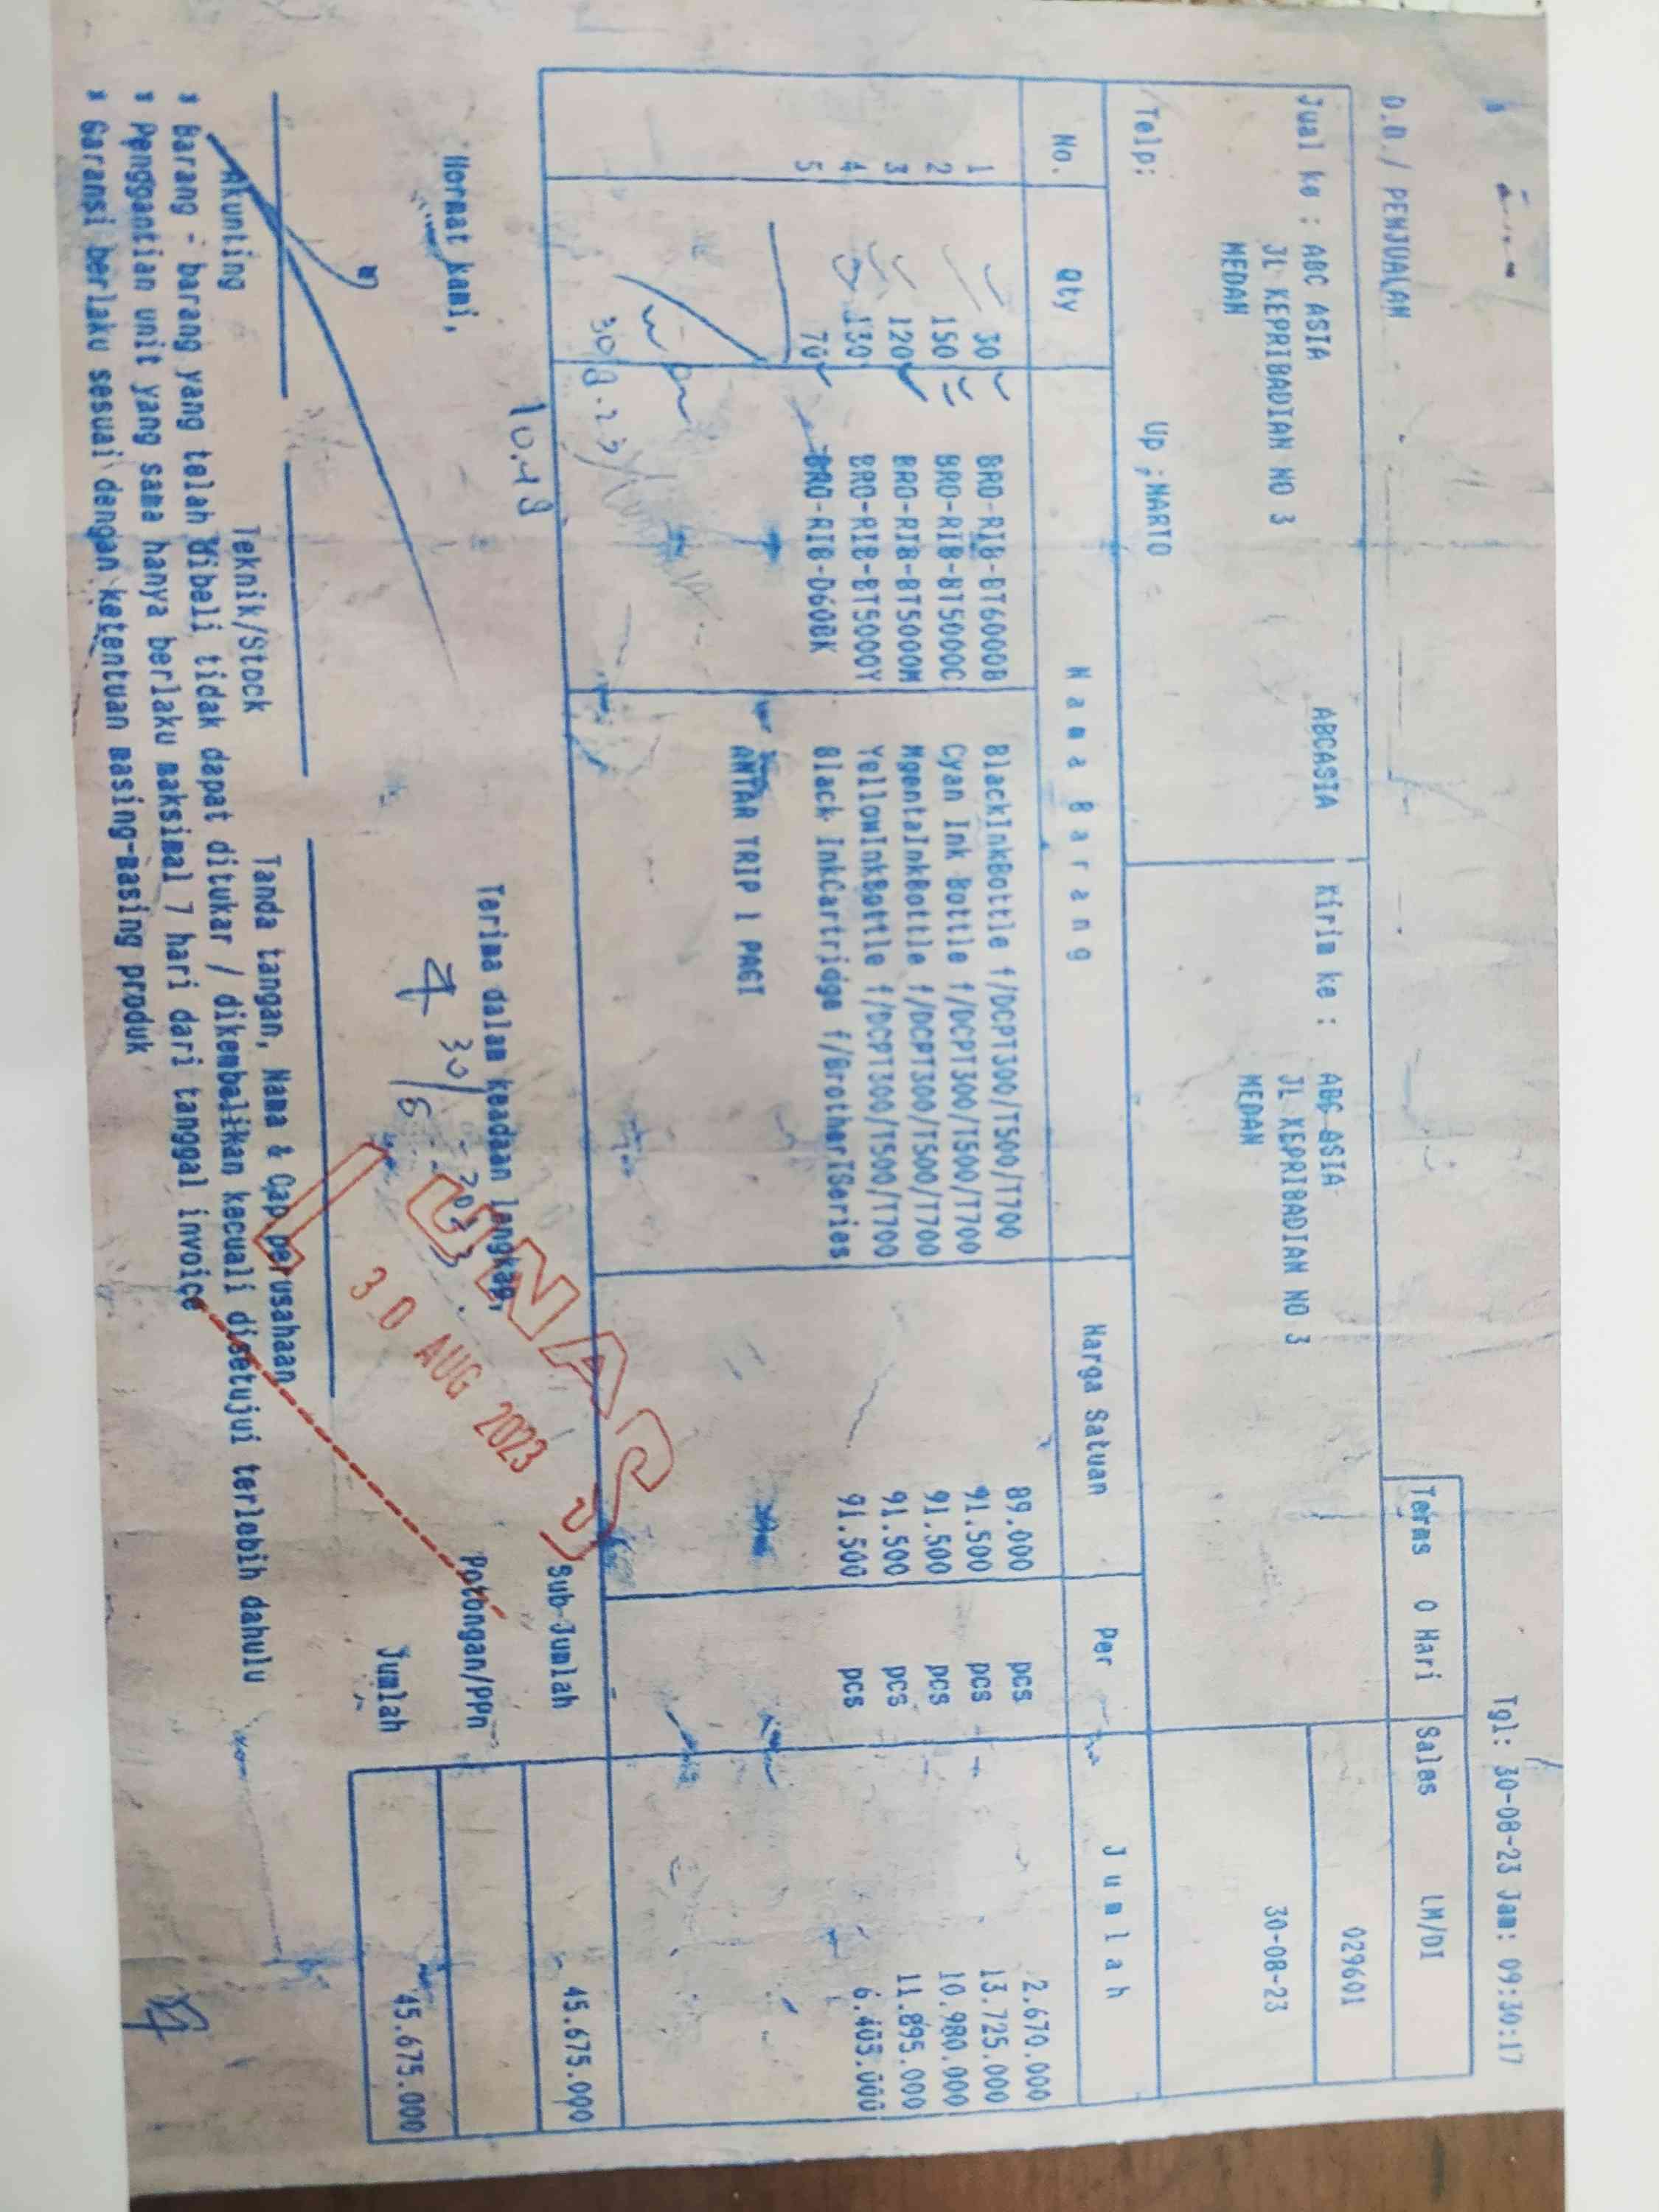 Tgl: 30-08-23 Jam: 09:30:17
D.O./ PENJUALAN
Terms 0 Hari Sales LM/DI
Jual ke : ABC ASIA ABCASIA Kirim ke : ABC ASIA 029601
JL KEPRIBADIAN NO 3 JL KEPRIBADIAN NO 3 30-08-23
MEDAN MEDAN
Telp: Up ;NARTO
No. Qty Nama Barang Harga Satuan Per Jumlah
1 30 BRO-RIB-BT6000B BlackInkBottle f/DCPT300/T500/T700 89.000 pcs 2.670.000
2 150 BRO-RIB-BT5000C Cyan Ink Bottle f/DCPT300/T500/T700 91.500 pcs 13.725.000
3 120 BRO-RIB-BT5000M MgentaInkBottle f/DCPT300/T500/T700 91.500 pcs 10.980.000
4 130 BRO-RIB-BT5000Y YellowInkBottle f/DCPT300/T500/T700 91.500 pcs 11.895.000
5 70 BRO-RIB-D60BK Black InkCartridge f/BrotherTSeries 91.500 pcs 6.405.000
ANTAR TRIP 1 PAGI
30/8-23
10.49
Sub-Jumlah 45.675.000
Hormat kami, Terima dalam keadaan lengkap,
Potongan/PPn
30/8-2023
Jumlah 45.675.000
LUNAS
30 AUG 2023
Akunting Teknik/Stock Tanda tangan, Nama & Cap perusahaan
* Barang - barang yang telah dibeli tidak dapat ditukar / dikembalikan kecuali disetujui terlebih dahulu
* Penggantian unit yang sama hanya berlaku maksimal 7 hari dari tanggal invoice
* Garansi berlaku sesuai dengan ketentuan masing-masing produk